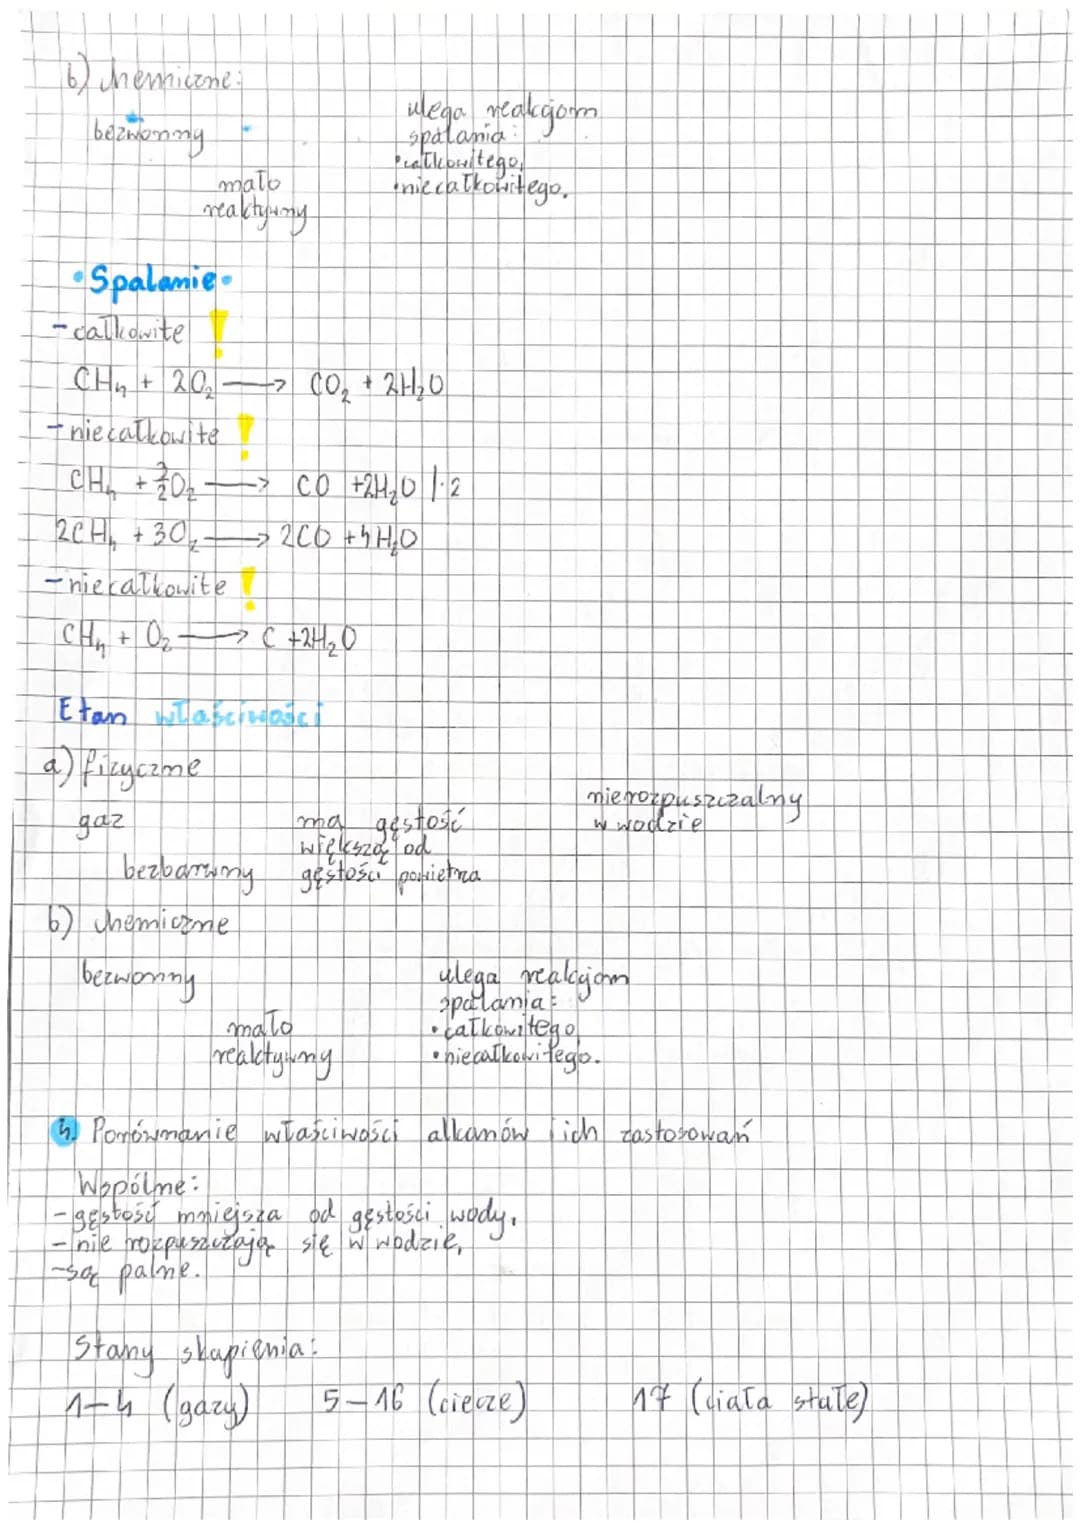 b) chemiczne:
bezwonny
mało
reaktywny
ulega reakcjom
spalania:
•całkowitego,
•niecałkowitego.
•Spalanie•
- całkowite !
CH₄ + 2O₂ → CO₂ + 2H₂O
- niecałkowite !
CH₄ + 3/2O₂ → CO +2H₂O /·2
2CH₄ + 3O₂ → 2CO +4H₂O
- niecałkowite !
CH₄ + O₂ → C +2H₂O
Etan właściwości
a) fizyczne
gaz
bezbarwny
ma gęstość
większą od
gęstości powietrza
nierozpuszczalny
w wodzie
b) chemiczne
bezwonny
mało
reaktywny
ulega reakcjom
spalania:
•całkowitego
•niecałkowitego.
4. Porównanie właściwości alkanów i ich zastosowań
Wspólne:
- gęstość mniejsza od gęstości wody,
- nie rozpuszczają się w wodzie,
- są palne.
Stany skupienia:
1-4 (gazy) 5-16 (ciecze) 17 (ciała stałe)